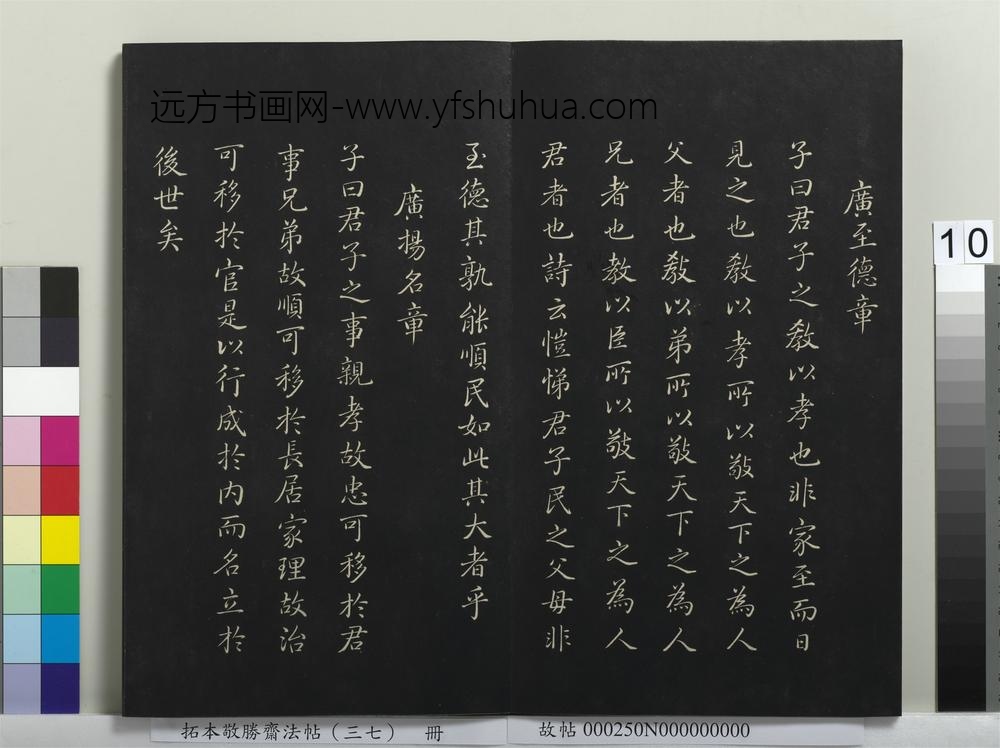 远方书画网-www.yfshuhua.com
廣至德章
子曰君子之教以孝也非家至而日
見之也教以孝所以敬天下之為人
父者也教以弟所以敬天下之為人
兄者也教以臣所以敬天下之為人
君者也詩云愷悌君子民之父母非
至德其孰能順民如此其大者乎
廣揚名章
子曰君子之事親孝故忠可移於君
事兄弟故順可移於長居家理故治
可移於官是以行成於內而名立於
後世矣
10
拓本敬勝齋法帖（三七） 冊
故帖 000250N000000000